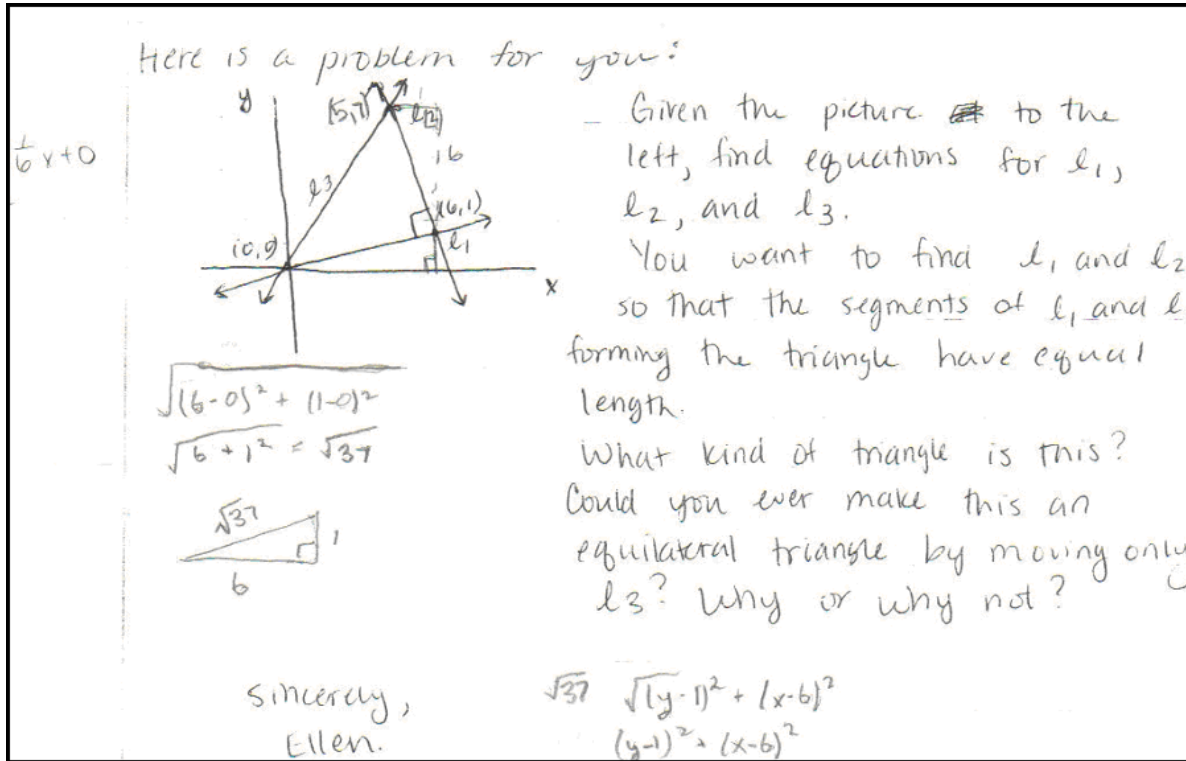 Here is a problem for you:
y
(5,7)
l2
1/6 x+0
l3
6
(6,1)
(0,0)
l1
x
Given the picture to the
left, find equations for l1,
l2, and l3.
You want to find l1 and l2
so that the segments of l1 and l
forming the triangle have equal
length.
What kind of triangle is this?
Could you ever make this an
equilateral triangle by moving only
l3? Why or why not?
√(6-0)² + (1-0)²
√6 + 1² = √37
√37
1
6
Sincerely,
Ellen.
√37 √(y-1)² + (x-6)²
(y-1)² + (x-6)²